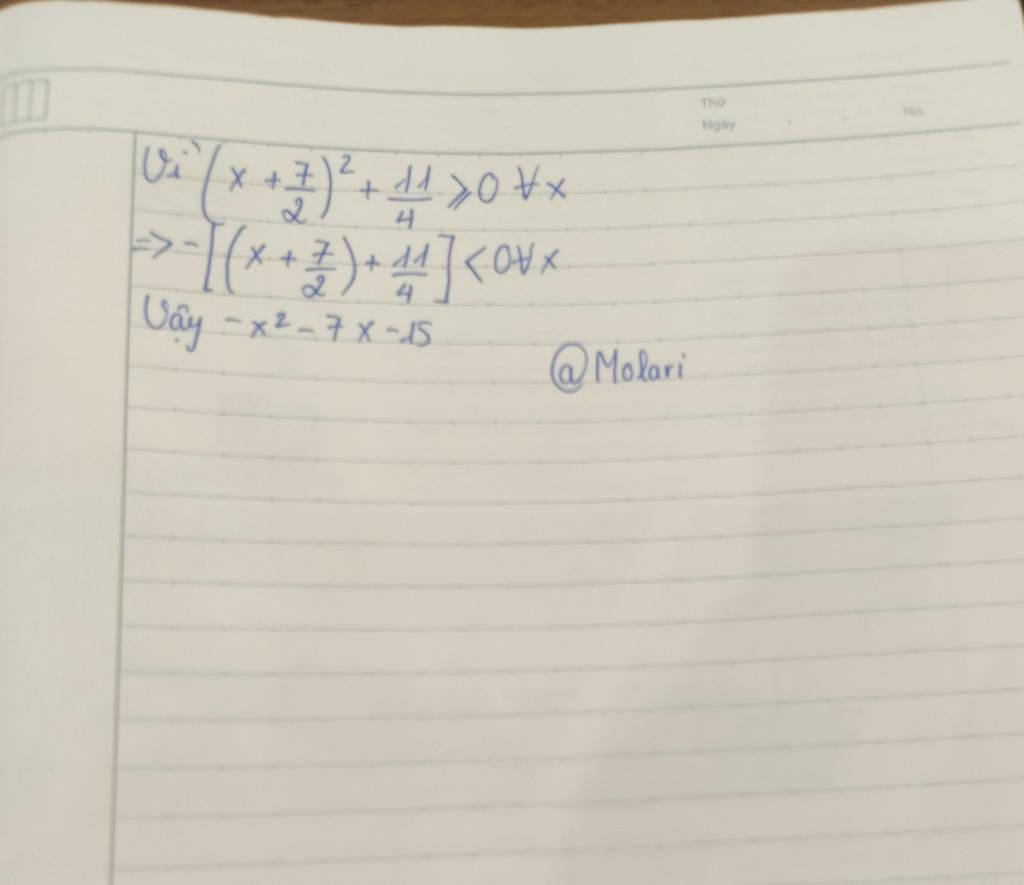 Thứ
Ngày
No.
Vì (x + 7/2)² + 11/4 ⩾ 0 ∀ x
=> - [(x + 7/2) + 11/4] < 0 ∀ x
Vậy - x² - 7x - 15
@Molari